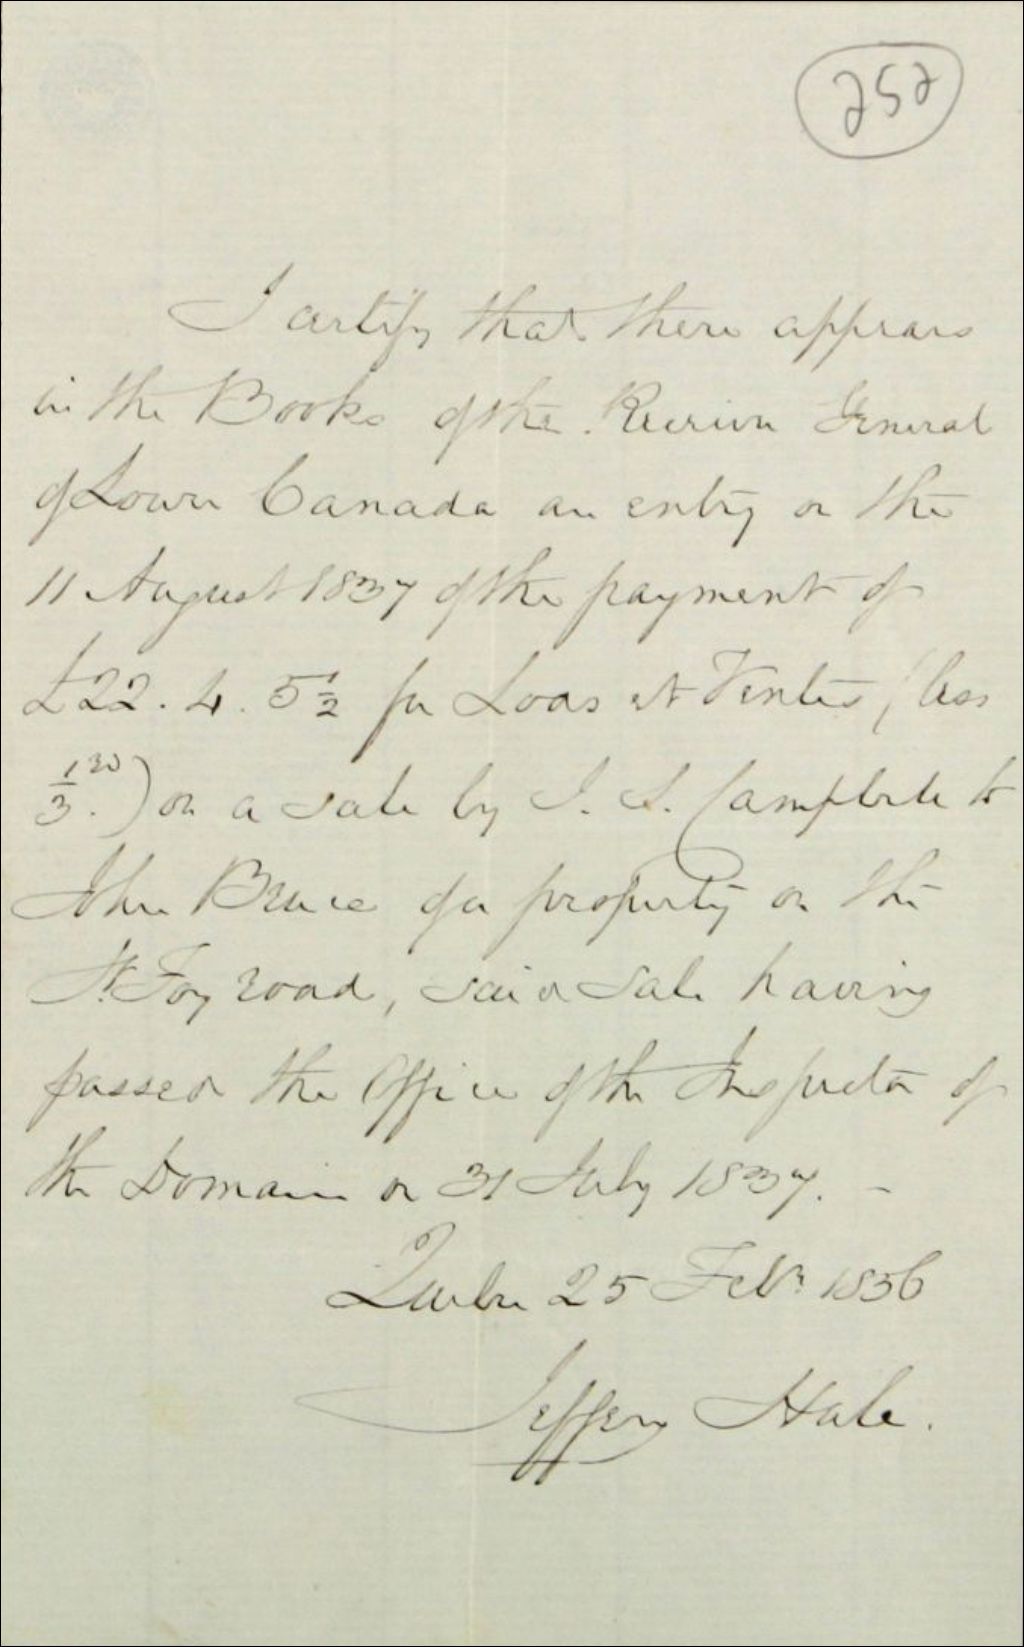 252
I certify that there appears
in the Books of the Receiver General
of Lower Canada an entry on the
11 August 1837 of the payment of
£22. 4. 5½ for Lods et Ventes (less
1/3rd.) on a sale by I. S. Campbele to
John Bruce of a property on the
St. Foy road, said sale having
passed the Office of the Inspector of
the Domain on 31 July 1837. -
Quebec 25 Feby 1856
Jeffery Hale.